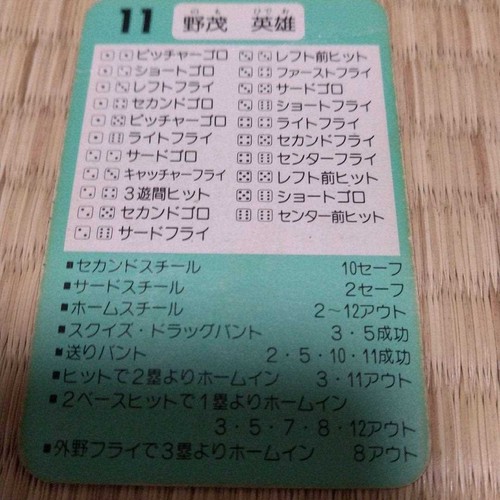 11 野茂 英雄
のも ひでお
ピッチャーゴロ
ショートゴロ
レフトフライ
セカンドゴロ
ピッチャーゴロ
ライトフライ
サードゴロ
キャッチャーフライ
3遊間ヒット
セカンドゴロ
サードフライ
レフト前ヒット
ファーストフライ
サードゴロ
ショートフライ
ライトフライ
セカンドフライ
センターフライ
レフト前ヒット
ショートゴロ
センター前ヒット
■セカンドスチール 10セーフ
■サードスチール 2セーフ
■ホームスチール 2~12アウト
■スクイズ・ドラッグバント 3・5成功
■送りバント 2・5・10・11成功
■ヒットで2塁よりホームイン 3・11アウト
■2ベースヒットで1塁よりホームイン
3・5・7・8・12アウト
■外野フライで3塁よりホームイン 8アウト